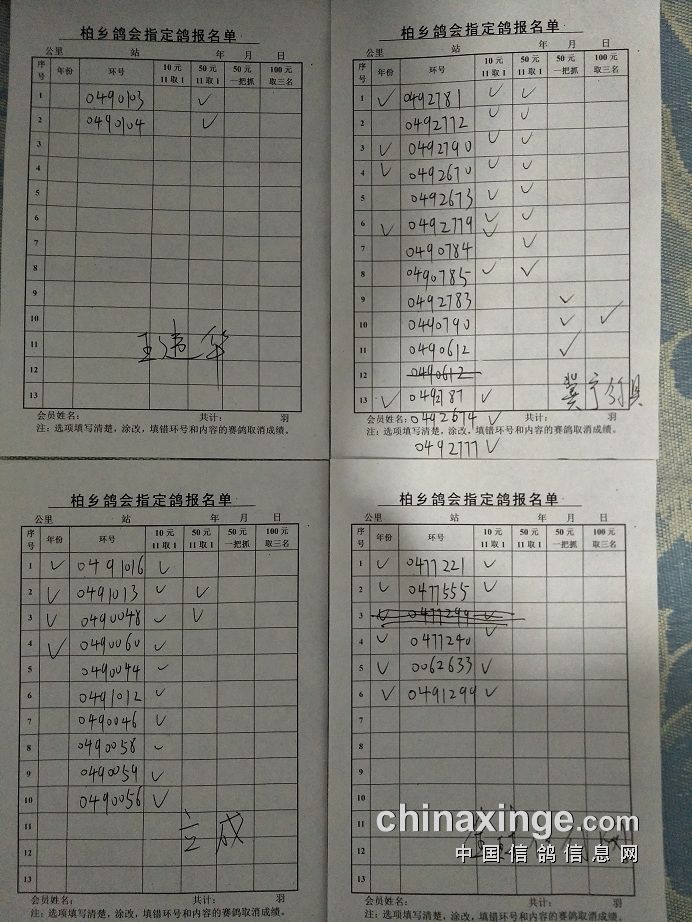 柏乡鸽会指定鸽报名单
公里 站 年 月 日
序号 年份 环号 10元 11取1 50元 11取1 50元 一把抓 100元 取三名
1 0490103 ✓
2 0490104 ✓
3
4
5
6
7
8
9
10
11
12
13
会员姓名： 共计： 羽
注：选项填写清楚，涂改，填错环号和内容的赛鸽取消成绩。
柏乡鸽会指定鸽报名单
公里 站 年 月 日
序号 年份 环号 10元 11取1 50元 11取1 50元 一把抓 100元 取三名
1 ✓ 0492781 ✓ ✓
2 0492772 ✓ ✓
3 ✓ 0492790 ✓ ✓
4 ✓ 0492670 ✓ ✓
5 0492673 ✓ ✓
6 ✓ 0492779 ✓ ✓
7 0490784 ✓
8 0490785 ✓ ✓
9 0492783 ✓
10 0490790 ✓ ✓
11 0490612 ✓
12 0490612
13 ✓ 0492787 ✓
0492674 ✓
0492777 ✓
会员姓名： 共计： 羽
注：选项填写清楚，涂改，填错环号和内容的赛鸽取消成绩。
柏乡鸽会指定鸽报名单
公里 站 年 月 日
序号 年份 环号 10元 11取1 50元 11取1 50元 一把抓 100元 取三名
1 ✓ 0491016 ✓
2 ✓ 0491013 ✓ ✓
3 ✓ 0490048 ✓ ✓
4 ✓ 0490060 ✓
5 0490044 ✓
6 0491012 ✓
7 0490046 ✓
8 0490058 ✓
9 0490059 ✓
10 0490056 ✓
11 立成
12
13
会员姓名： 共计： 羽
注：选项填写清楚，涂改，填错环号和内容的赛鸽取消成绩。
柏乡鸽会指定鸽报名单
公里 站 年 月 日
序号 年份 环号 10元 11取1 50元 11取1 50元 一把抓 100元 取三名
1 ✓ 0477221 ✓
2 ✓ 0477555 ✓
3 ✓ 0477299 ✓
4 ✓ 0477240 ✓
5 ✓ 0062633 ✓
6 ✓ 0491299 ✓
7
8
9
10
11
12
13
会员姓名： 共计： 羽
注：选项填写清楚，涂改，填错环号和内容的赛鸽取消成绩。
chinaxinge.com
中国信鸽信息网